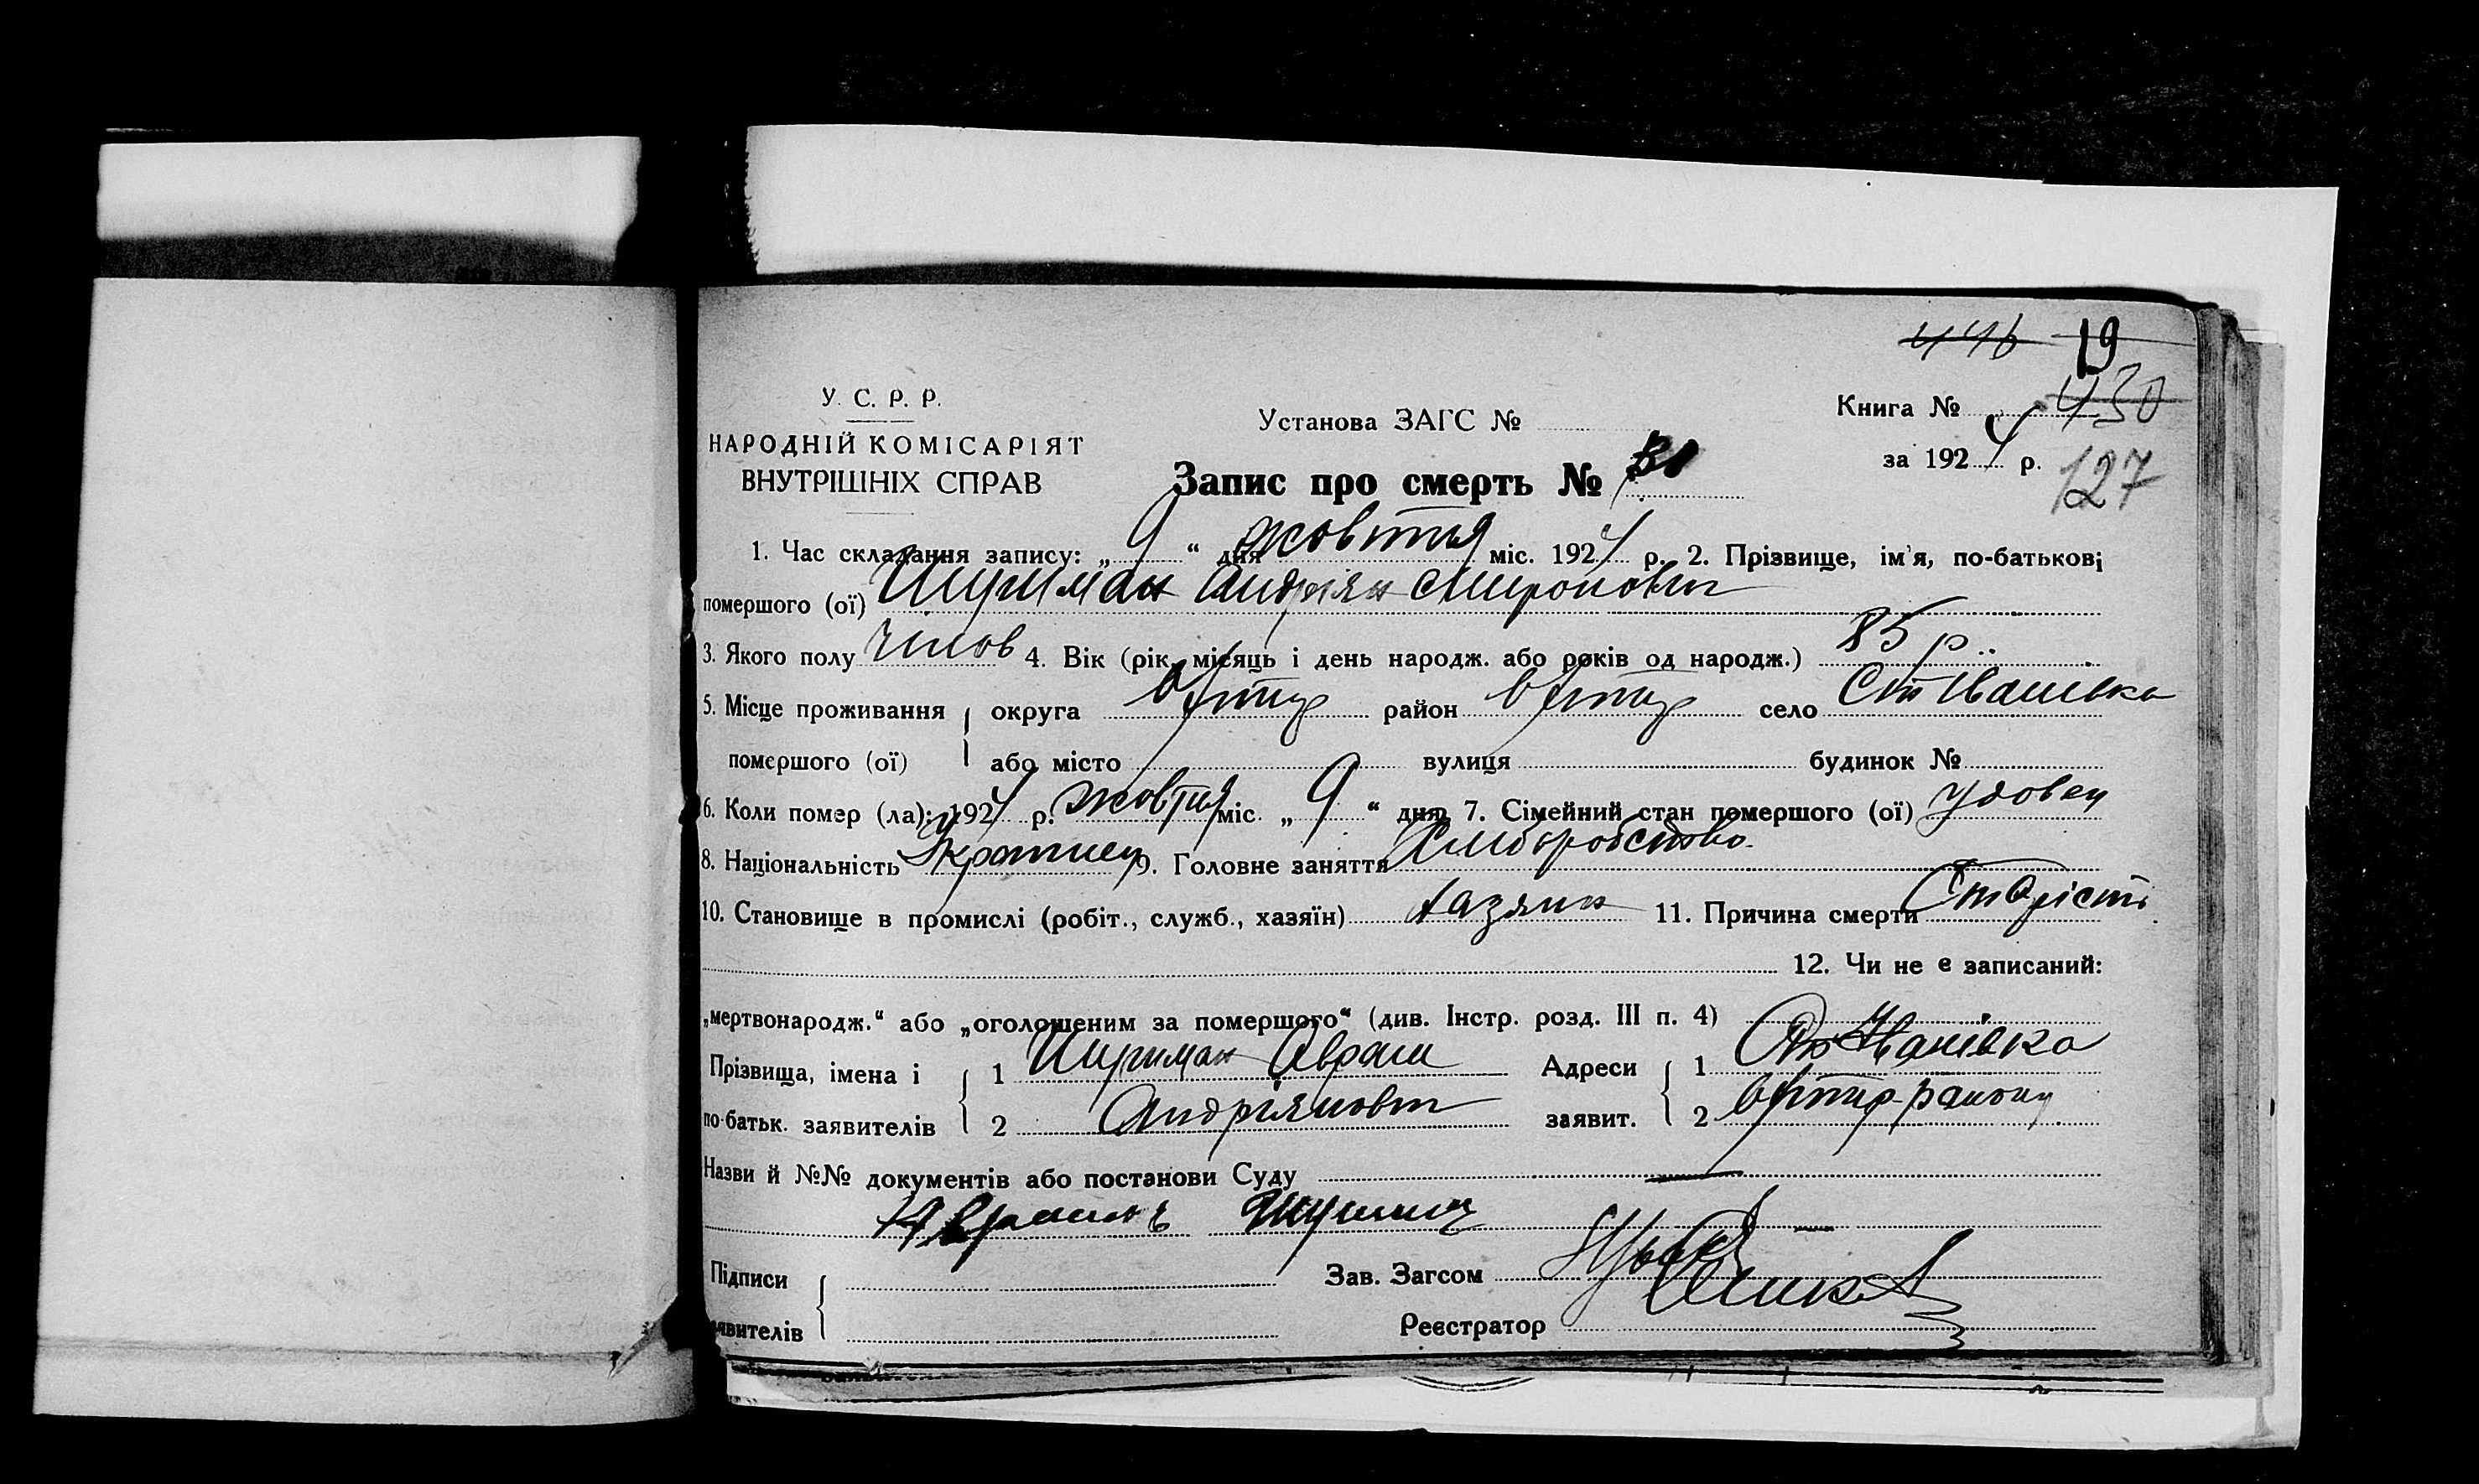 446 19
У. С. Р. Р.
НАРОДНІЙ КОМІСАРІЯТ
ВНУТРІШНІХ СПРАВ
Установа ЗАГС №
Книга № 430
за 1924 р. 127
Запис про смерть №
1. Час складання запису: „9“ дня жовтня міс. 1924 р. 2. Прізвище, ім'я, по-батькові
помершого (ої) Андріян Миронович
3. Якого полу чолов 4. Вік (рік, місяць і день народж. або років од народж.) 85 р.
5. Місце проживання округа район село Ст Іванівка
помершого (ої) або місто вулиця будинок №
6. Коли помер (ла): 1924 р. жовтня міс. „9“ дня 7. Сімейний стан помершого (ої) удовец
8. Національність Украинец 9. Головне заняття Хліборобство
10. Становище в промислі (робіт., служб., хазяїн) хазяин 11. Причина смерти Старість
12. Чи не є записаний:
„мертвонародж.“ або „оголошеним за померщого“ (див. Інстр. розд. III п. 4)
Прізвища, імена і 1 Аврам Адреси 1 Ст Іванівка
по-батьк. заявителів 2 Андріянович заявит. 2 району
Назви й №№ документів або постанови Суду —
Підписи Зав. Загсом
явителів Реєстратор